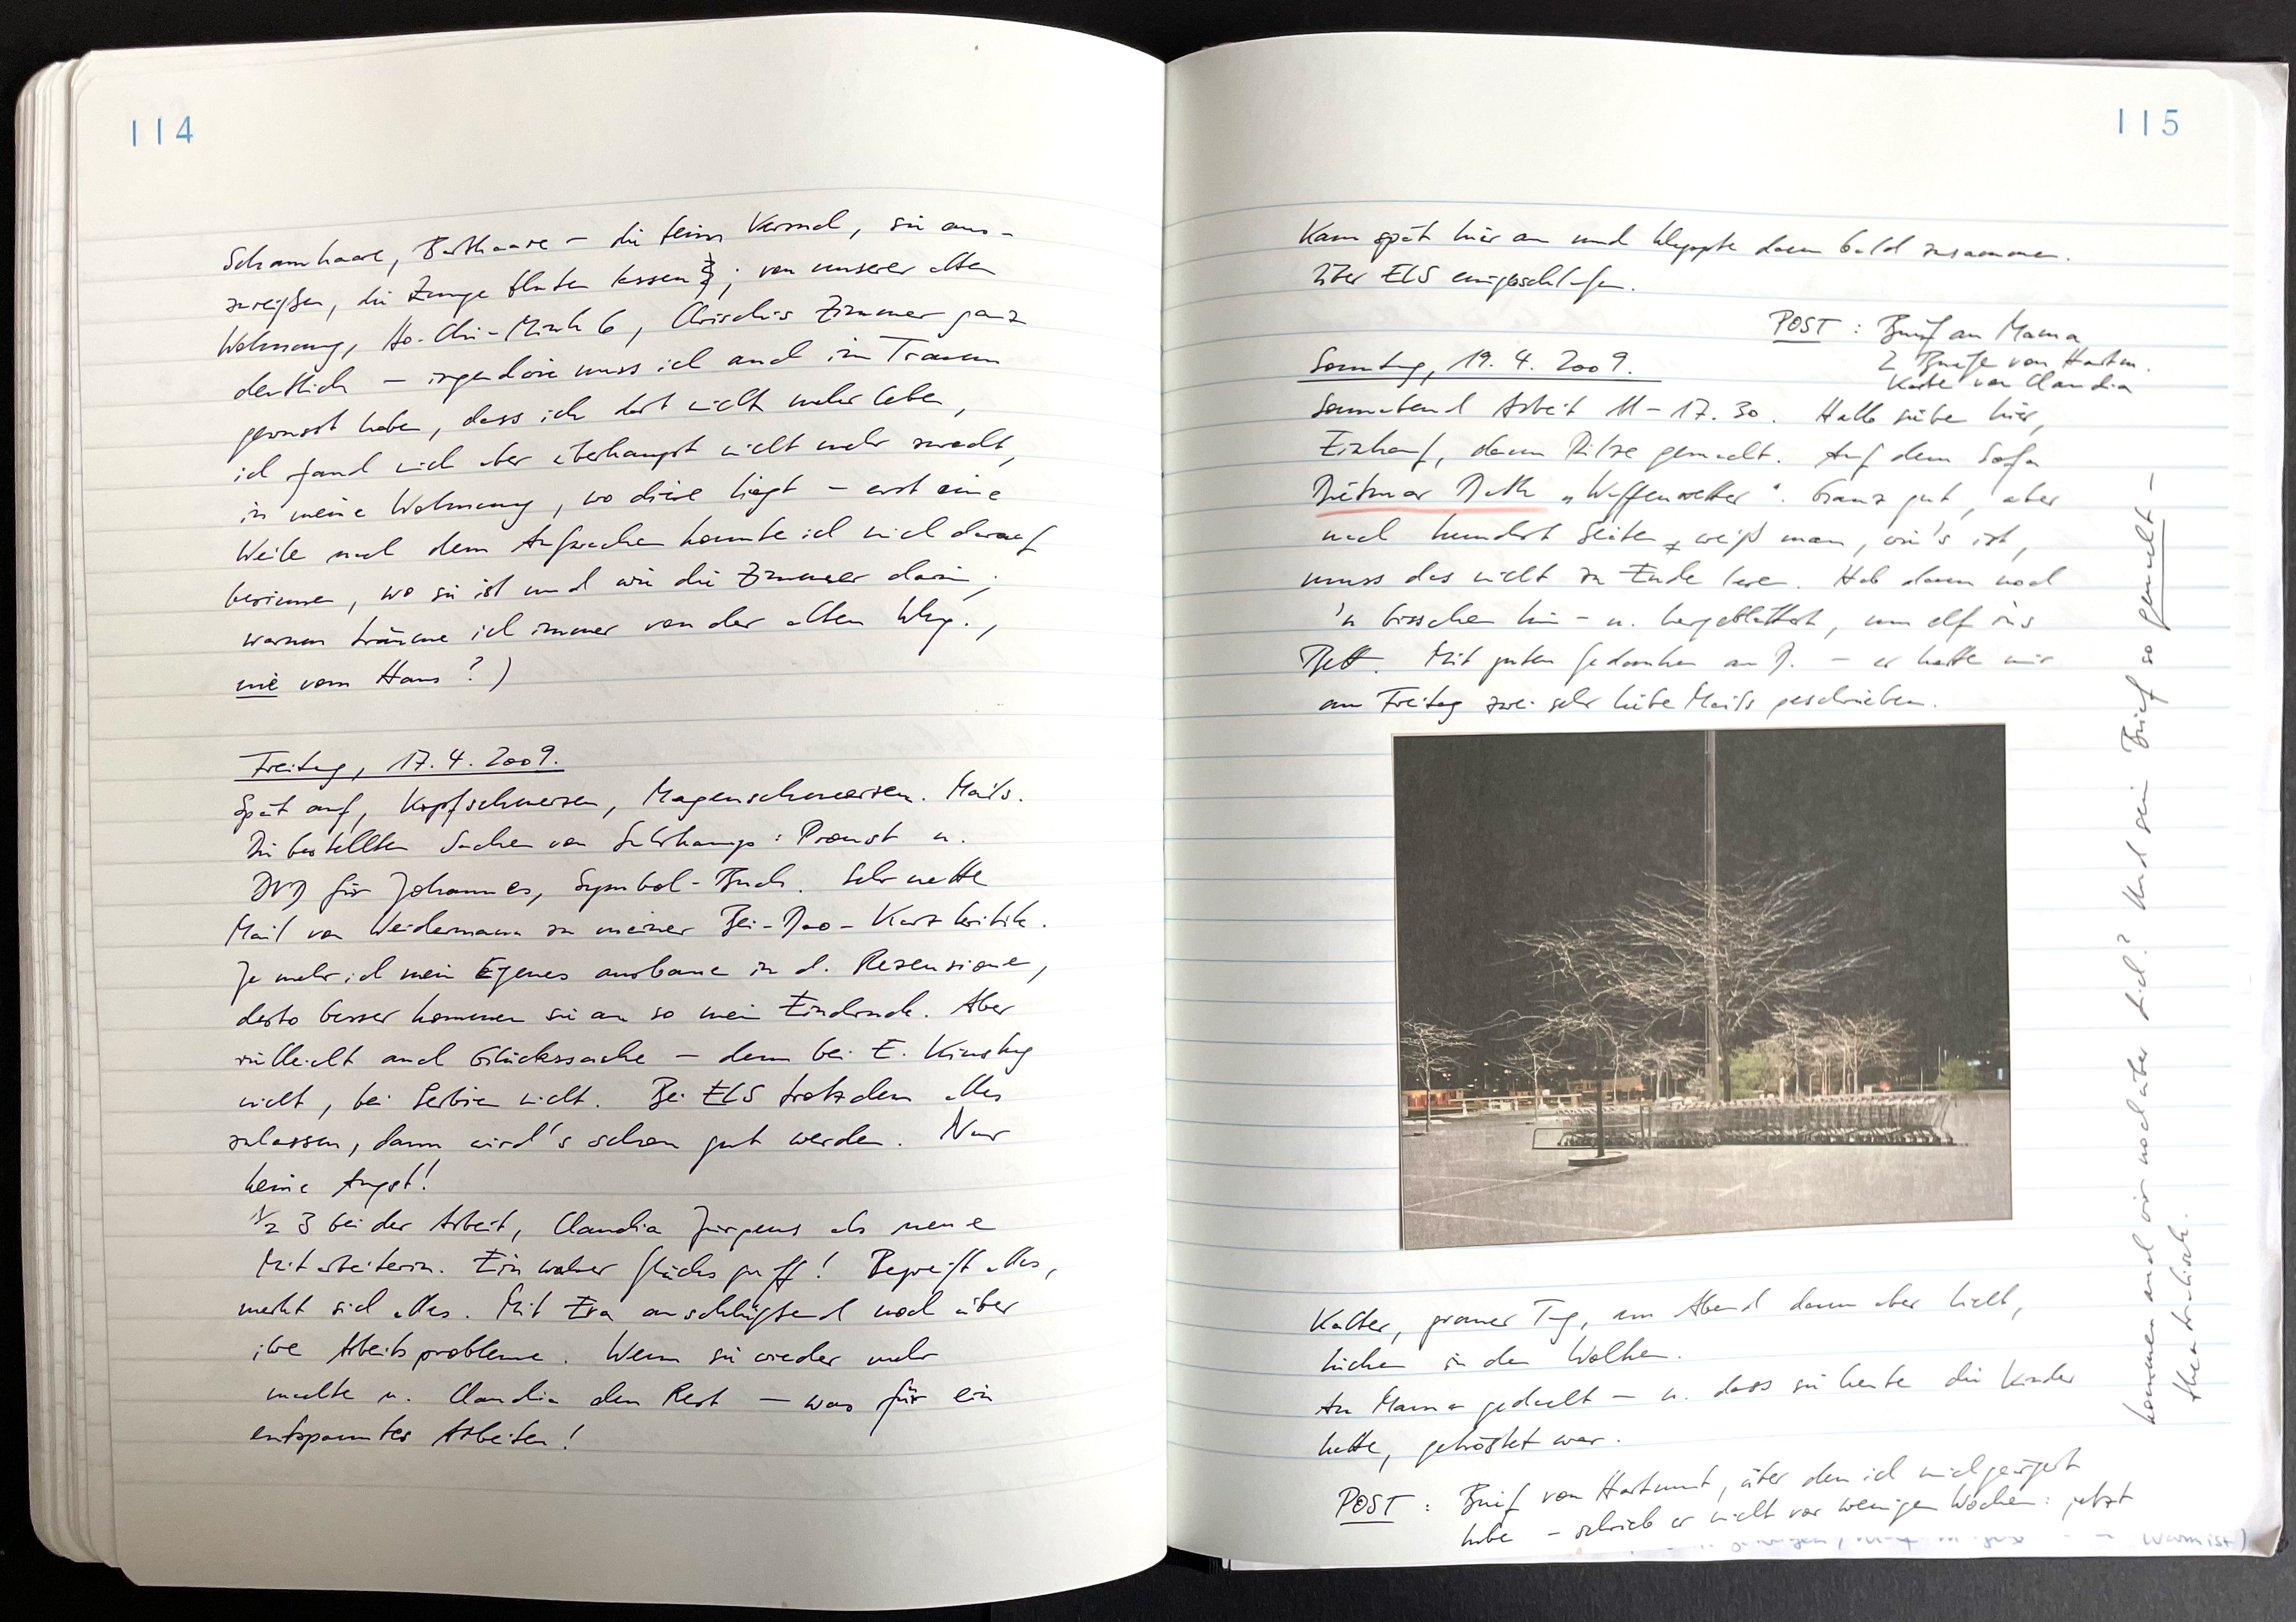 114
Schamhaare, Barthaare – die feine Versuch, sie aus-
zureißen, die Zunge bluten lassen; von unserer alten
Wohnung, Ho-Chi-Minh 6, Zimmer ganz
deutlich – irgendwie muss ich auch im Traum
gewusst haben, dass ich dort nicht mehr lebe,
ich fand mich aber überhaupt nicht mehr zurecht,
in meine Wohnung, wo diese liegt – erst eine
Weile nach dem Aufwachen konnte ich mich darauf
besinnen, wo sie ist und wie die Zimmer darin;
warum träume ich immer von der alten Whg.,
nie vom Haus?)
Freitag, 17.4.2009.
Spät auf, Kopfschmerzen, Magenschmerzen. Mails.
Die bestellten Sachen von Suhrkamp: Proust u.
DVD für Johannes, Symbol-Buch. Sehr nette
Mail von Weidermann zu meiner Bei-Dao-Kurzkritik.
Je mehr ich mein Eigenes ausbaue in d. Rezensionen,
desto besser kommen sie an so mein Eindruck. Aber
vielleicht auch Glückssache – denn bei E. Kinsky
nicht, bei Serbien nicht. Bei ELS trotzdem alles
zulassen, dann wird's schon gut werden. Nur
keine Angst!
1/2 3 bei der Arbeit, Claudia Jürgens als neue
Mitarbeiterin. Ein wahrer Glücksgriff! Begreift alles,
merkt sich alles. Mit Eva anschließend noch über
ihre Arbeitsprobleme. Wenn sie wieder mehr
machte u. Claudia den Rest – was für ein
entspanntes Arbeiten!
115
Kam spät hier an und klappte dann bald zusammen.
Über ELS eingeschlafen.
POST: Brief an Mama
2 Briefe von Hartm.
Karte von Claudia
Sonntag, 19.4.2009.
Sonnabend Arbeit 11–17.30. Halb sieben hier,
Einkauf, dann Pilze gemacht. Auf dem Sofa
Dietmar Dath „Waffenwetter“. Ganz gut, aber
nach hundert Seiten weiß man, wie's ist,
muss das nicht zu Ende lesen. Hab dann noch
'n bisschen hin- u. hergeblättert, um elf ins
Bett. Mit guten Gedanken an D. – er hatte mir
am Freitag zwei sehr liebe Mails geschrieben.
Kalter, grauer Tag, am Abend dann aber Licht,
Lücken in den Wolken.
An Mama gedacht – u. dass sie heute die Kinder
hatte, getröstet war.
POST: Brief von Hartmut, über den ich mich geärgert
habe – schrieb er nicht vor wenigen Wochen: jetzt
kommen auch wir noch über dich? Und sein Brief so gemalt –
theatralisch.
warm ist)